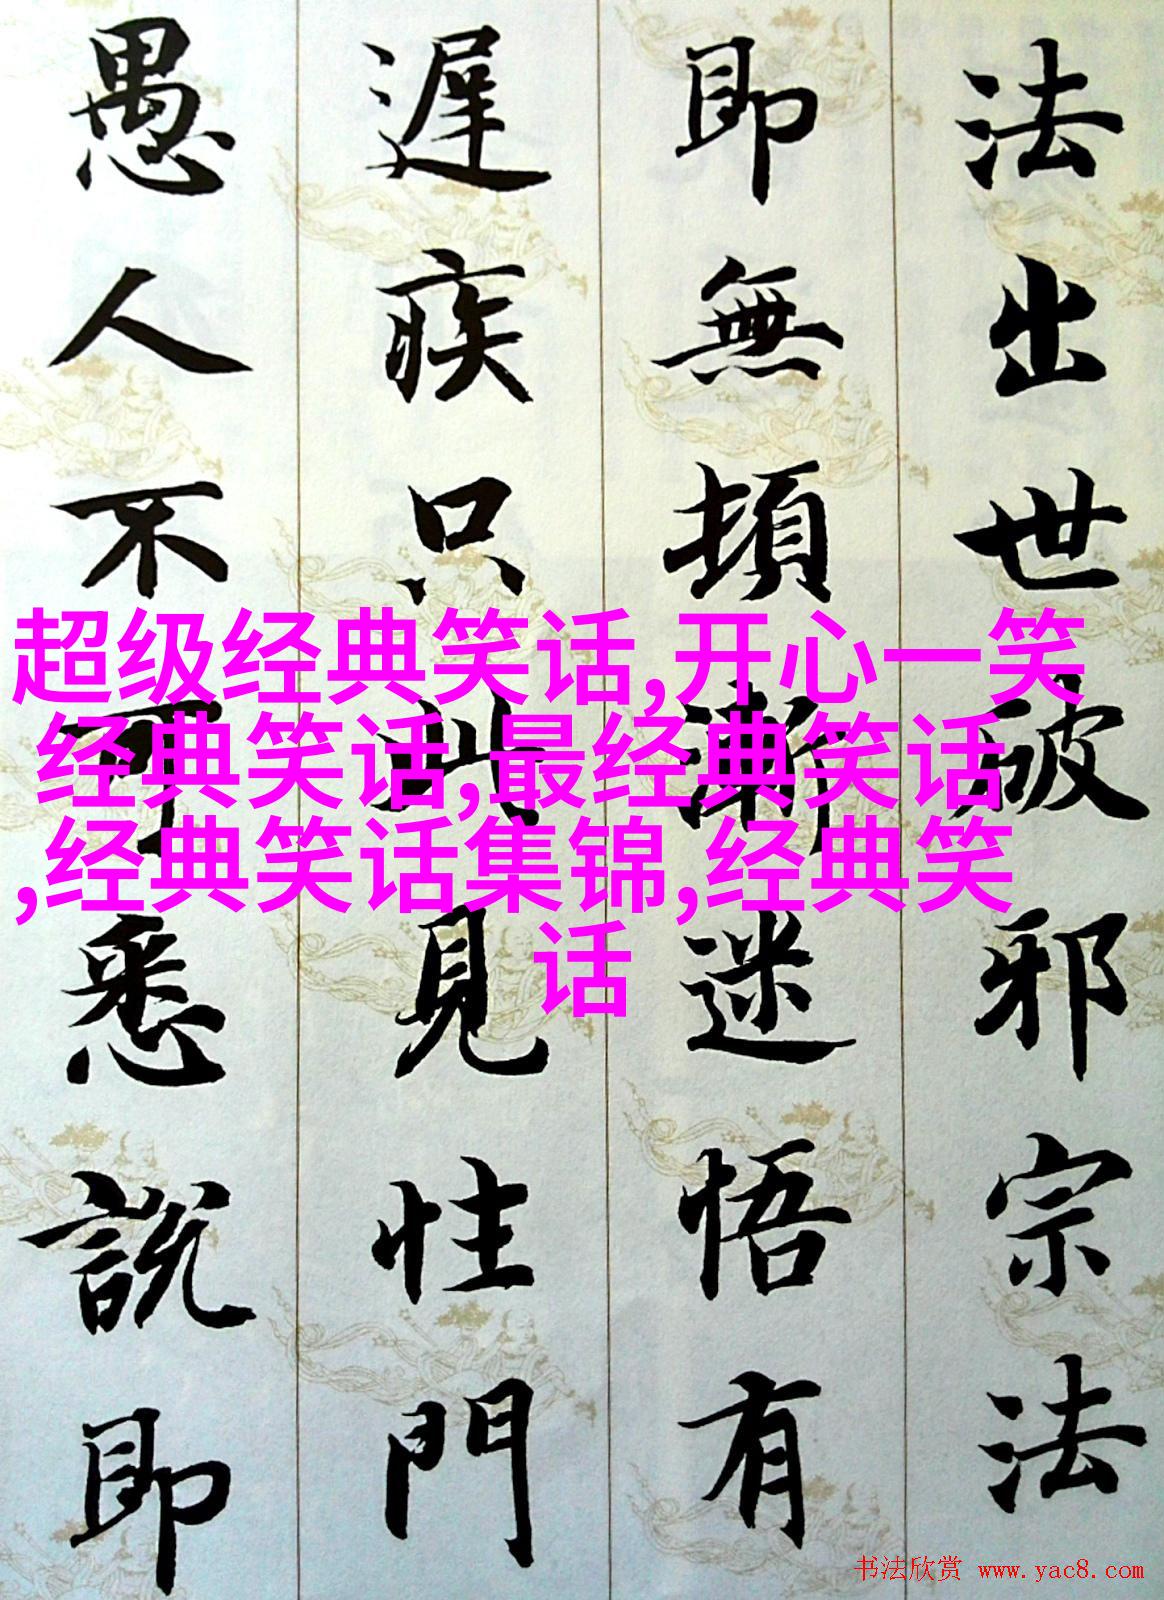 法出世破邪宗法
即無頓漸迷悟有
遲疾只此見性門
愚人不可悉說即
超级经典笑话,开心一笑
经典笑话,最经典笑话
,经典笑话集锦,经典笑
话
书法欣赏 www.yac8.com